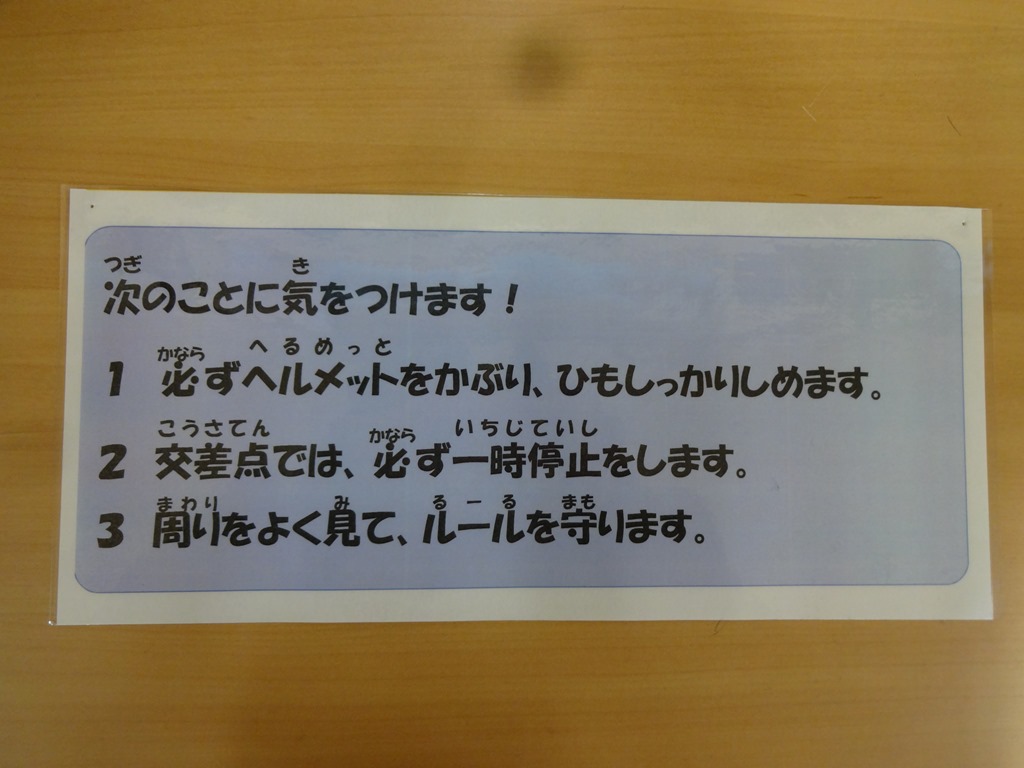 つぎ き
次のことに気をつけます！
かなら へるめっと
1 必ずヘルメットをかぶり、ひもしっかりしめます。
こうさてん かなら いちじていし
2 交差点では、必ず一時停止をします。
まわり み るーる まも
3 周りをよく見て、ルールを守ります。